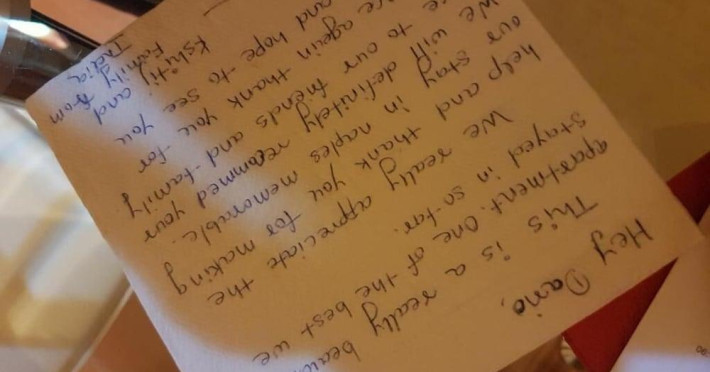 Hey Dario,
This is a really
apartment. One of the best we
stayed in so far.
We really appreciate the
help and thank you for making
our stay in naples memorable.
We will definitely recommed your
to our friends and family
again thank you for
and hope to see you
Kshitij and
Family from
India